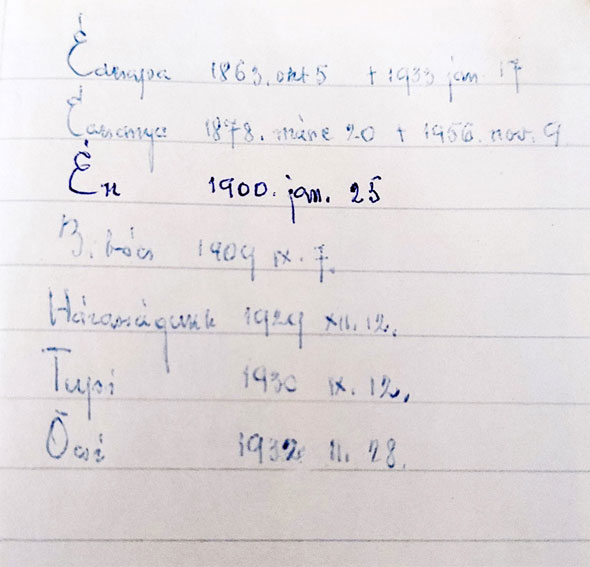 Édesapa 1863. okt 5 + 1933 jan 17
Édesanya 1878. márc 20 + 1956. nov. 9
Én 1900. jan. 25
B. 1909 IX. 7.
Házasságunk 1929 XII. 12.
Tupi 1930 IX. 12.
Öcsi 1932 II. 28.